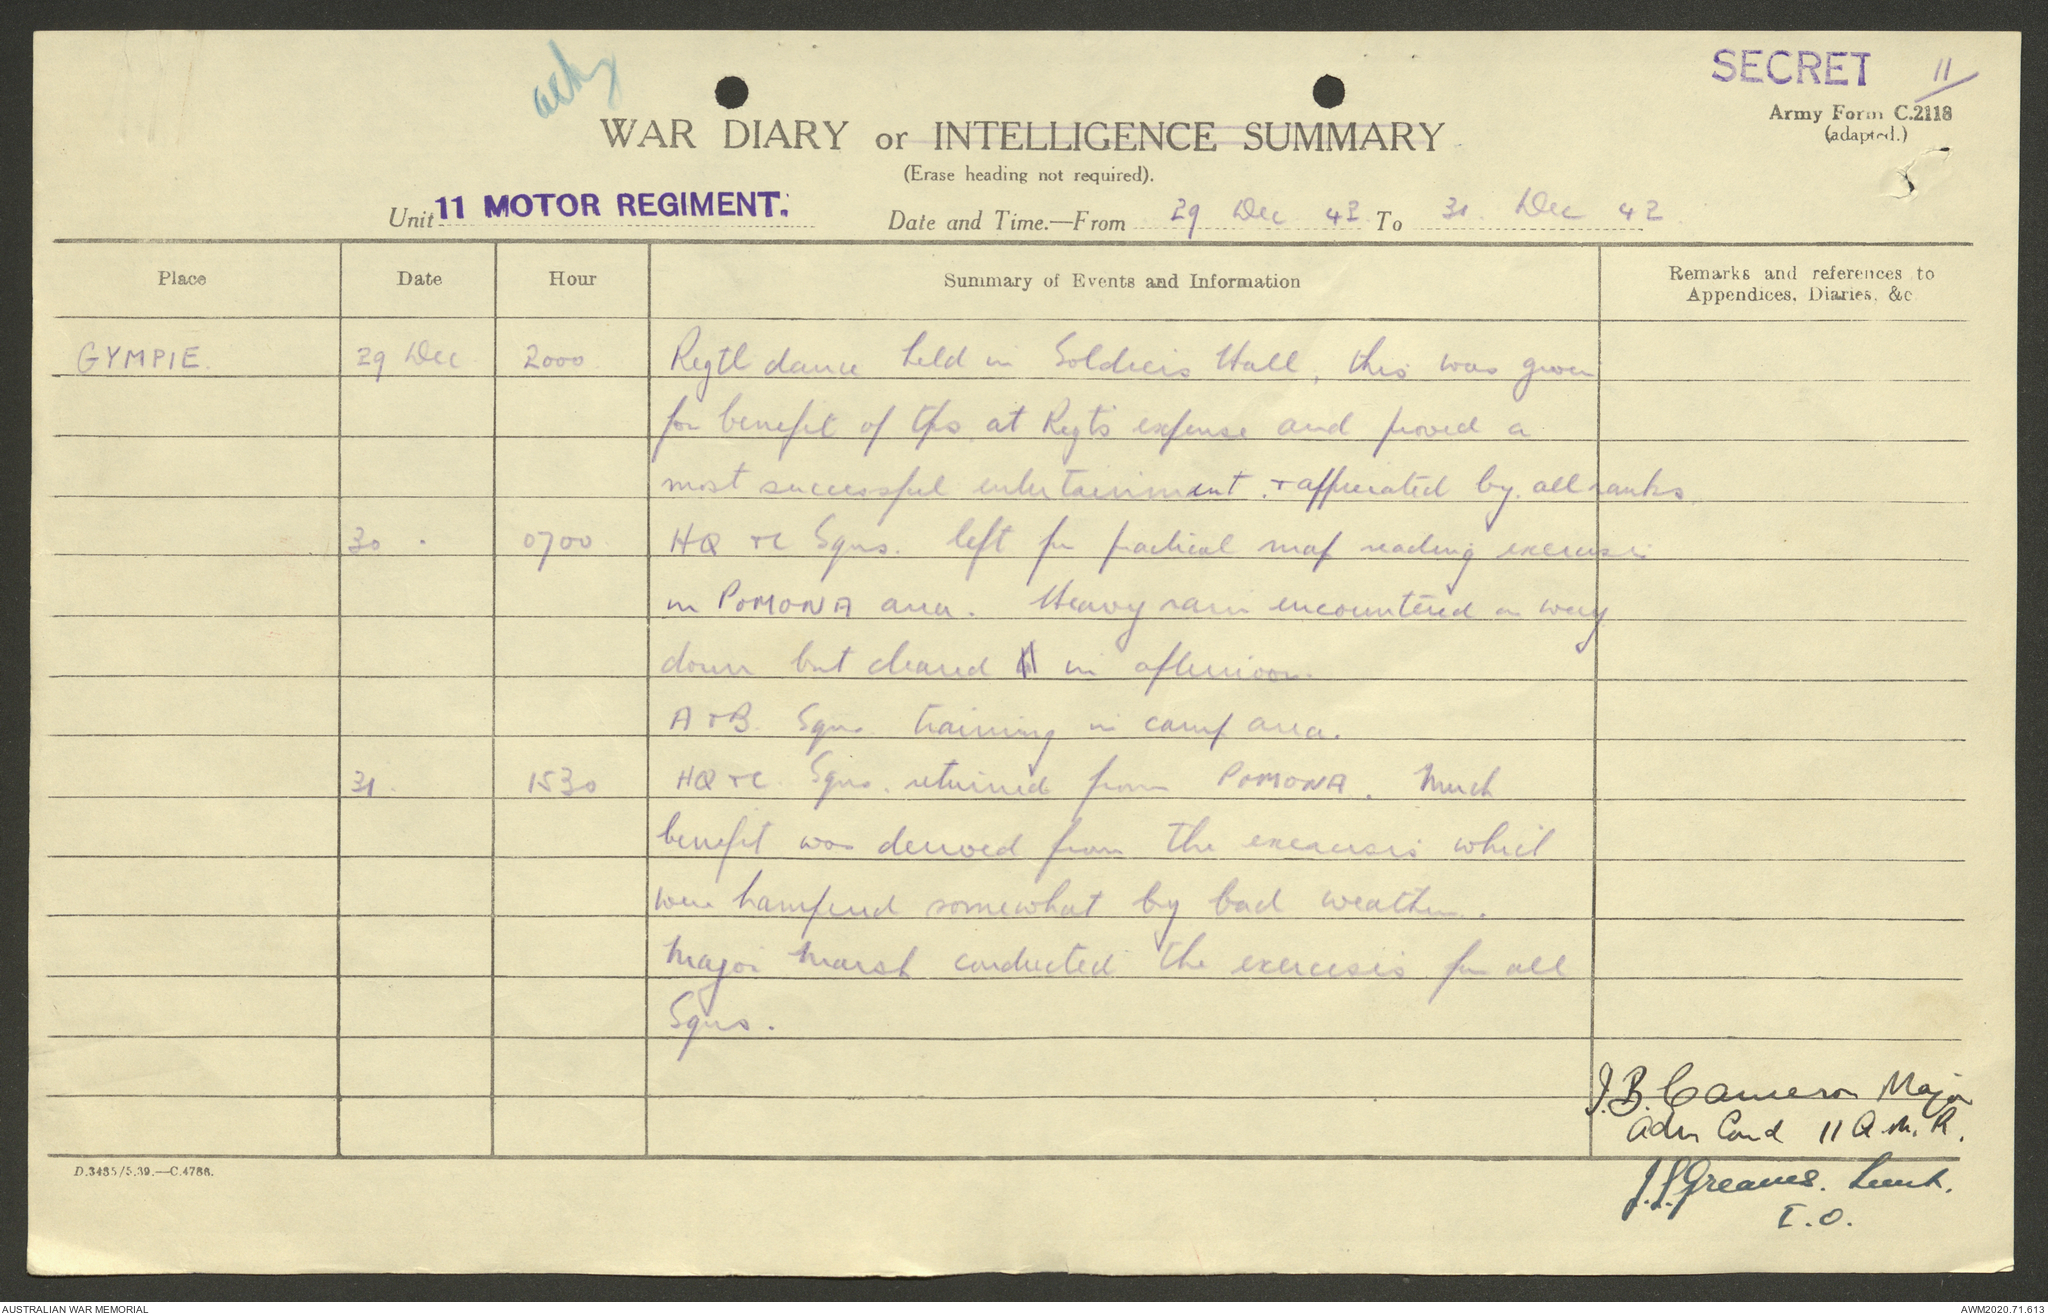 SECRET 11
Army Form C.2118
(adapted.)
WAR DIARY or INTELLIGENCE SUMMARY
(Erase heading not required).
Unit 11 MOTOR REGIMENT. Date and Time.—From 29 Dec 42 To 31 Dec 42
Place Date Hour Summary of Events and Information Remarks and references to
Appendices, Diaries, &c
GYMPIE. 29 Dec 2000 Regtl dance held in Soldiers Hall, this was given
for benefit of tps at Regts expense and proved a
most successful entertainment + appreciated by all ranks
30 " 0700 HQ + C Sqns. left for practical map reading exercises
in POMONA area. Heavy rain encountered on way
down but cleared in afternoon.
A + B Sqns training in camp area.
31. 1530 HQ + C Sqns. returned from POMONA. Much
benefit was derived from the exercises which
were hampered somewhat by bad weather.
Major Marsh conducted the exercises for all
Sqns.
J.B. Cameron Major
Adm Comd 11 A.M.R.
Greaves. Lieut.
I.O.
D.3485/5.39.—C.4788.
AUSTRALIAN WAR MEMORIAL AWM2020.71.613